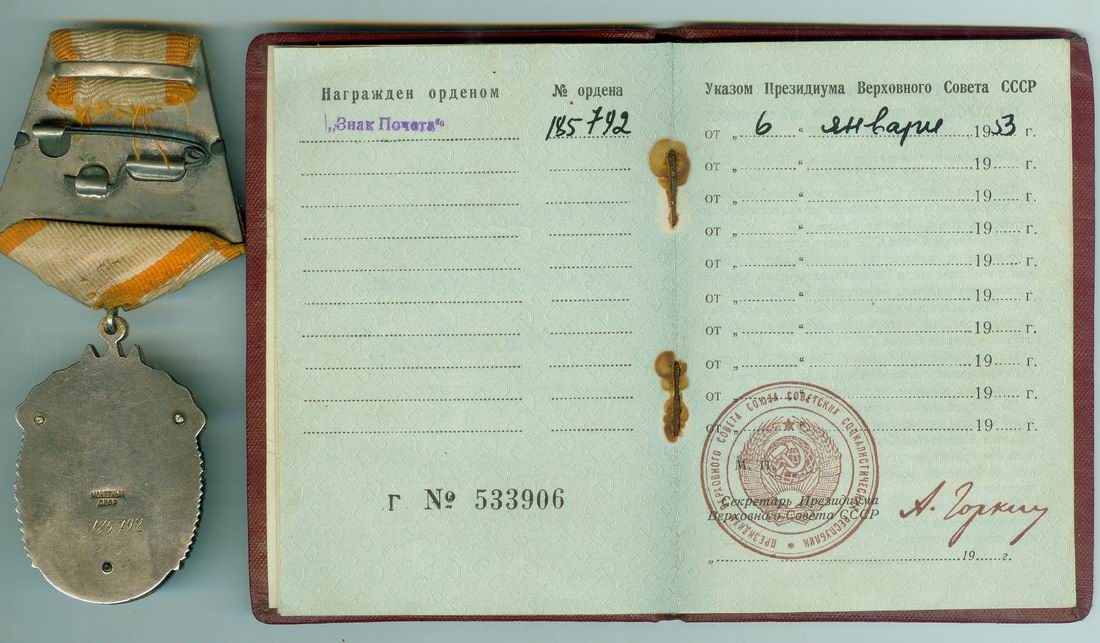 МОНЕТНЫЙ
ДВОР
185792
Награжден орденом
№ ордена
„Знак Почета“
185792
Г № 533906
Указом Президиума Верховного Совета СССР
от „ 6 “ января 1953 г.
от „ “ 19 г.
от „ “ 19 г.
от „ “ 19 г.
от „ “ 19 г.
от „ “ 19 г.
от „ “ 19 г.
от „ “ 19 г.
от „ “ 19 г.
от „ “ 19 г.
ПРЕЗИДИУМ ВЕРХОВНОГО СОВЕТА СОЮЗА СОВЕТСКИХ СОЦИАЛИСТИЧЕСКИХ РЕСПУБЛИК
М. П.
Секретарь Президиума
Верховного Совета СССР
А. Горкин
„ “ 19 г.